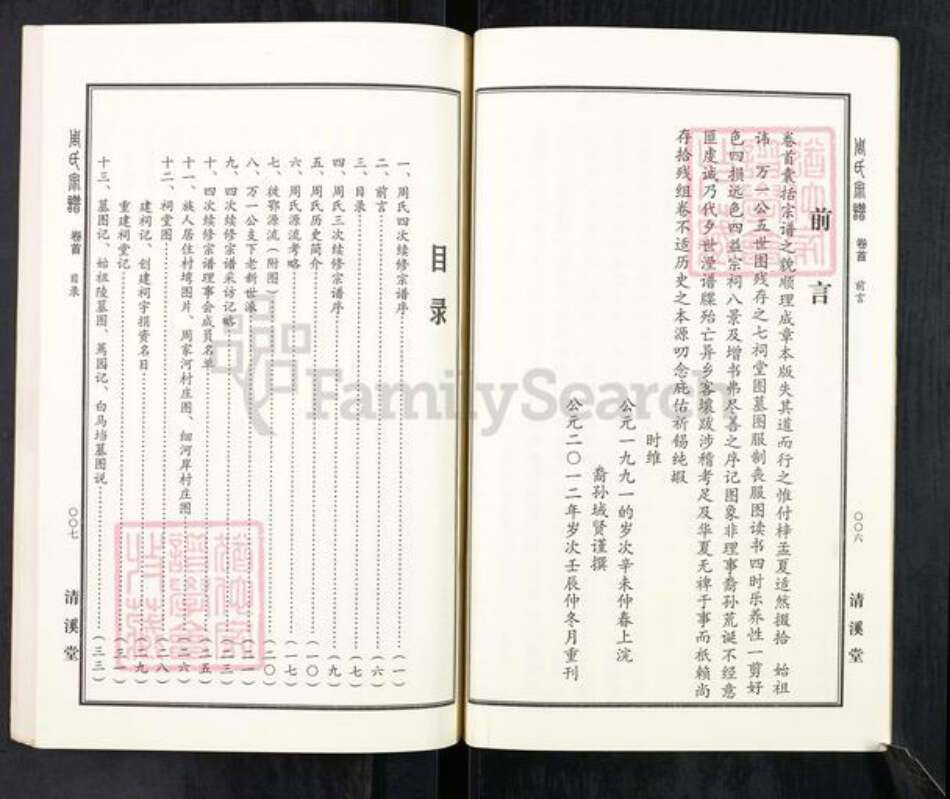 周氏宗谱 卷首 前言 〇〇六 清溪堂
前言
卷首囊括宗谱之貌顺理成章本版失其道而行之惟付梓孟夏适然掇拾 始祖
讳 万一公五世图残存之七祠堂图墓图服制丧服图读书四时乐养性一剪好
色四损远色四益宗祠八景及增书弗尽善之序记图象非理事裔孙荒诞不经意
匪虔诚乃代夕世湮谱牒殆亡异乡客壤跋涉稽考足及华夏无裨于事而祇赖尚
存拾残组卷不适历史之本源叨念庇佑祈锡纯嘏
时维
公元一九九一的岁次辛未仲春上浣
裔孙城贤谨撰
公元二〇一二年岁次壬辰仲冬月重刊
目录
一、周氏四次续修宗谱序（一）
二、前言（六）
三、目录（七）
四、周氏三次续修宗谱序（九）
五、周氏历史简介（一〇）
六、周氏源流考略（一七）
七、徙鄂源流（附图）（二〇）
八、万一公支下老新世派（二一）
九、四次续修宗谱采访记略（二三）
十、四次续修宗谱理事会成员名单（二五）
十一、族人居住村塆图片、周家河村庄图、细河岸村庄图（二六）
十二、祠堂图（二八）
建祠记、创建祠宇捐资名目（二九）
重建祠堂记（三一）
十三、墓图记、始祖陵墓图、茑园记、白鸟垱墓图说（三三）
周氏宗谱 卷首 目录 〇〇七 清溪堂
FamilySearch